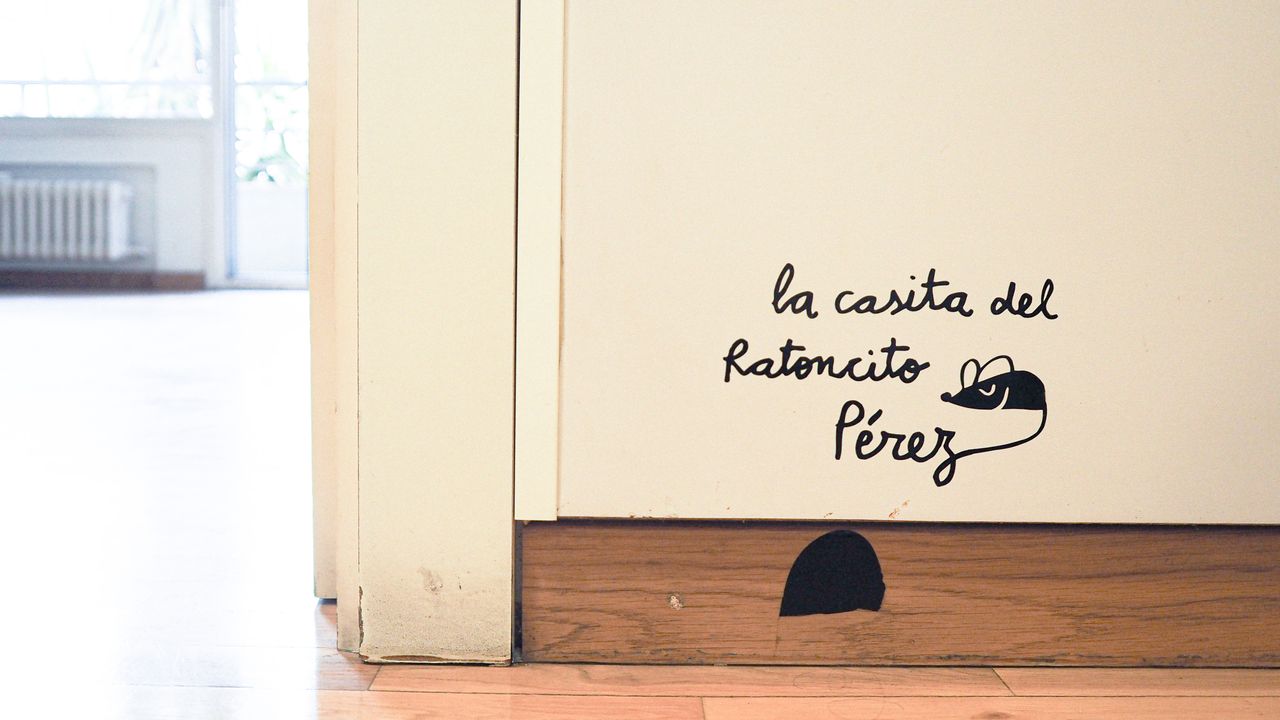 la casita del
Ratoncito
Pérez